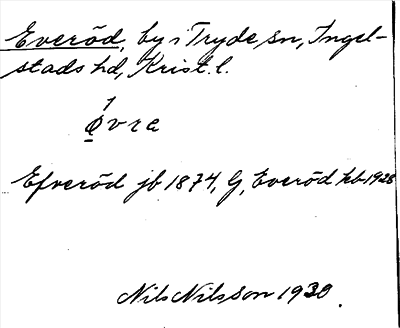 Everöd, by i Tryde sn, Ingel-
stads hd, Krist. l.
1
øvra
Efveröd jb 1874, G, Everöd kb 1928
Nils Nilsson 1930.